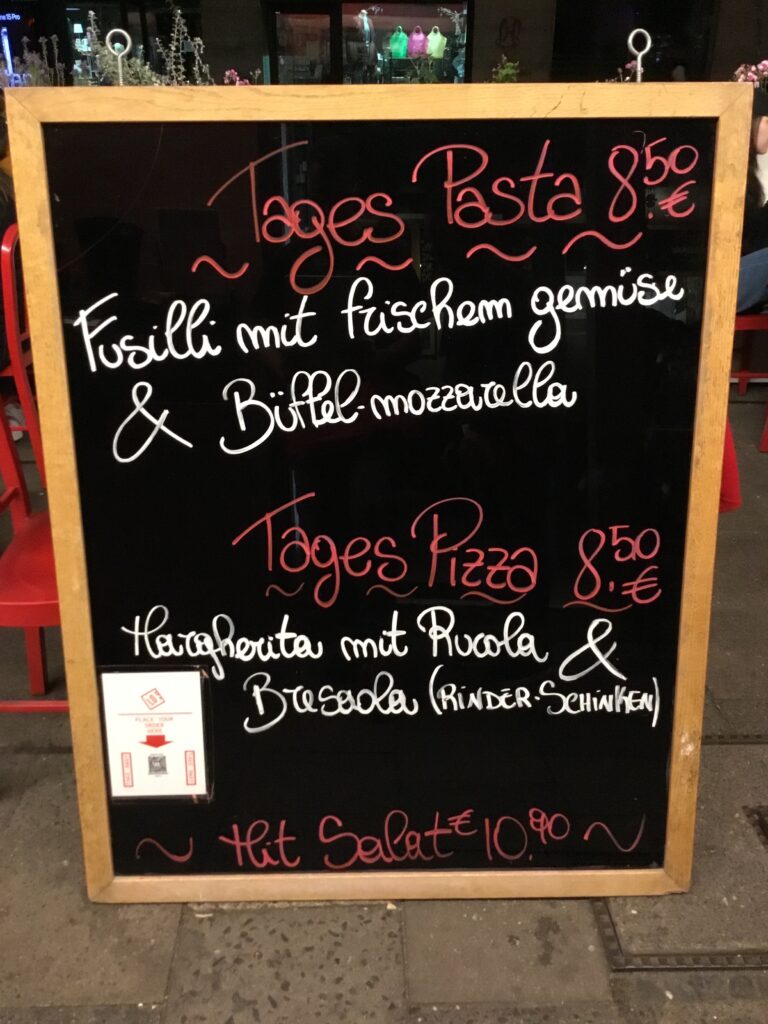 Tages Pasta 8.50 €
Fusilli mit frischem gemüse
& Büffel-mozzarella
Tages Pizza 8.50 €
Margherita mit Rucola &
Bresaola (RINDER-SCHINKEN)
PLACE YOUR
ORDER
HERE
~ Mit Salat € 10.90 ~